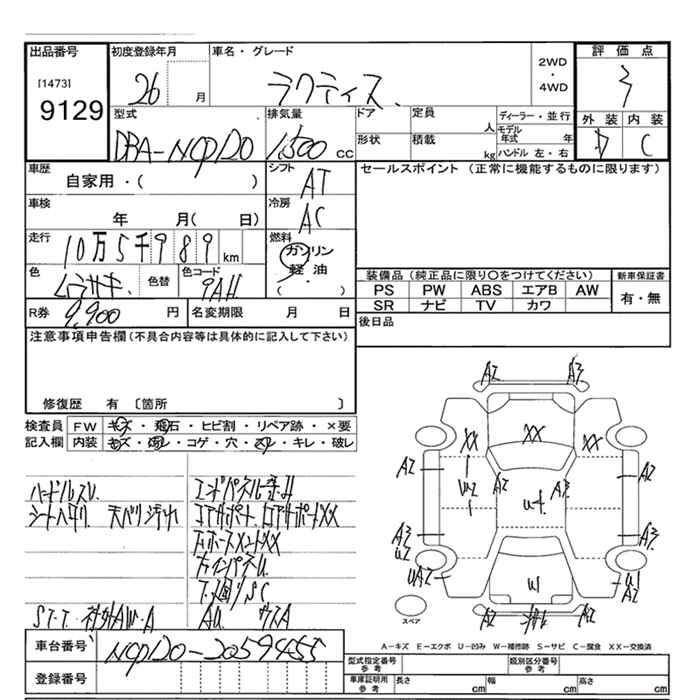 出品番号
[1473]
9129
初度登録年月
26
月
車名・グレード
ラクティス
2WD
・
4WD
評価点
3
外装 内装
D C
型式
DBA-NCP120
排気量
1,500 cc
ドア
定員
人
ディーラー・並行
モデル年式
年
形状
積載
kg
ハンドル 左・右
車歴
自家用・( )
シフト
AT
セールスポイント (正常に機能するものに限ります)
車検
年 月( 日)
冷房
AC
走行
10万5千989km
燃料
ガソリン
軽油
( )
色
ムラサキ
色替
色コード
9AH
装備品(純正品に限り○をつけてください)
新車保証書
PS PW ABS エアB AW
SR ナビ TV カワ
有・無
R券
9,900 円
名変期限 月 日
後日品
注意事項申告欄(不具合内容等は具体的に記入して下さい)
修復歴 有 〔箇所 〕
検査員記入欄
FW キズ・飛石・ヒビ割・リペア跡・×要
内装 キズ・汚レ・コゲ・穴・スレ・キレ・破レ
ハンドルスレ
シートヘタリ 天ベリ汚れ
コアサポート ロアサポートXX
下廻りSC
S.T.T 社外AW.A
AU ガスA
A2 A3
XX XX XX
A2 A2
U2 A2 A3
U4
A3 A3
U2
UA2 W U1
A2
A2 A2
スペア
A-キズ E-エクボ U-凹み W-補修跡 S-サビ C-腐食 XX-交換済
車台番号
NCP120-2059455
登録番号
型式指定番号
参考
類別区分番号
参考
車庫証明用
参考
長さ cm 幅 cm 高さ cm